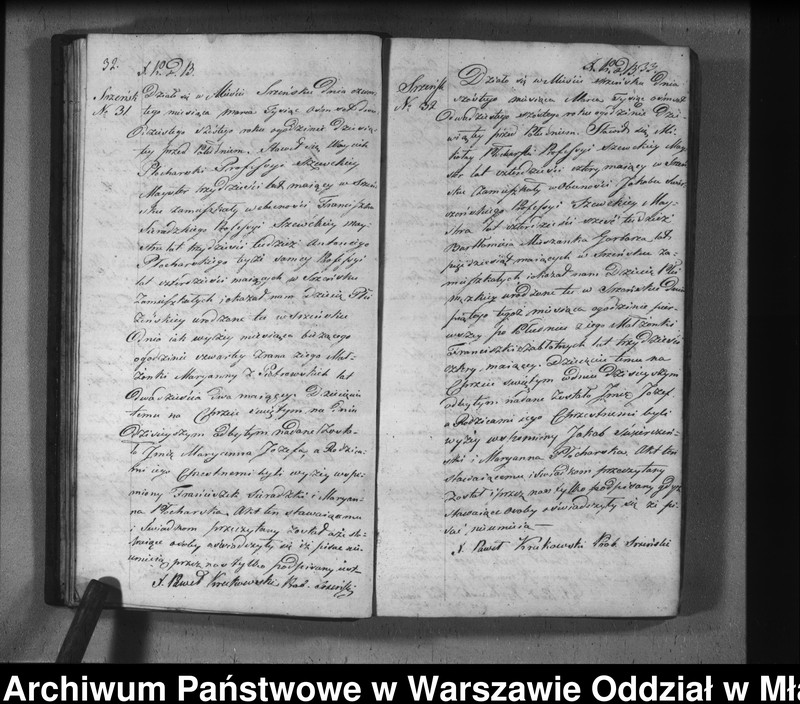 32.
Szreńsk
N. 31
Działo się w Mieście Szreńsku Dnia
tego miesiąca marca Tysiąc osm set
Dziewiątey przed Południem. Stawił się Woyciech
Płocharski Professyi Szewckiey
Mayster trzydzieści lat maiący w Szreń
sku zamieszkały w obecności Franciszka
Siradzkiego Professyi Szewckiey may
stra lat trzydzieści tudzież Antoniego
Płocharskiego tyże samey Professyi
lat czterdzieści maiących w Szreńsku
Zamieszkałych i okazał nam dziecię Płci
Żeńskiey urodzone tu w Szreńsku
Dnia iak wyżey miesiąca bieżącego
ogodzinie czwartey zrana z iego Mał
żonki Maryanny z Piotrowskich lat
Dwadzieścia dwa maiącey. Dziecięciu
temu na Chrzcie świętym na dniu
Dzisieyszym odbytym nadane zosta
ło Imię Maryanna Józefa, a Rodzica
mi iego Chrzestnemi byli wyżey wspo
miony Franciszek Siradzki i Maryan
na Płocharska, Akt ten stawaiącemu
i Świadkom przeczytany został a że sta
waiące osoby oświadczyły się iż pisać nie
umieią przez nas tylko podpisany iest
X. Paweł Krukowski Prob. Szreński
33
Szreńsk
N. 32
Działo się w Mieście Szreńsku Dnia
szóstego miesiąca Marca Tysiąc ośmset
Dwudziestego szóstego roku ogodzinie Dzie
wiątey przed Południem. Stawił się Mi
kołay Płocharski Professyi Szewckiey May
ster lat czterdzieści cztery maiący w Szreń
sku Zamieszkały w Obecności Jakuba
Professyi Szewckiey May
stra lat czterdzieści sześć tudzież
Bartłomieia Garbarza lat
pięćdziesiąt maiących w Szreńsku za
mieszkałych i okazał nam Dziecię Płci
męzkiey urodzone tu w Szreńsku Dnia
piątego tegoż miesiąca ogodzinie pier
wszey po Południu z iego Małżonki
Franciszki lat trzydzieści
cztery maiącey. Dziecięciu temu na
Chrzcie świętym odniu Dzisieyszym
odbytym nadane zostało Imię Józef
a Rodzicami iego Chrzestnemi byli
wyżey wspomniony Jakób
i Maryanna Płocharska. Akt ten
stawaiącemu i świadkom przeczytany
został i przez nas tylko podpisany gdyż
stawaiące osoby oświadczyły się że pi
sać nieumieią —
X. Paweł Krukowski Prob Szreński
Archiwum Państwowe w Warszawie Oddział w Mła